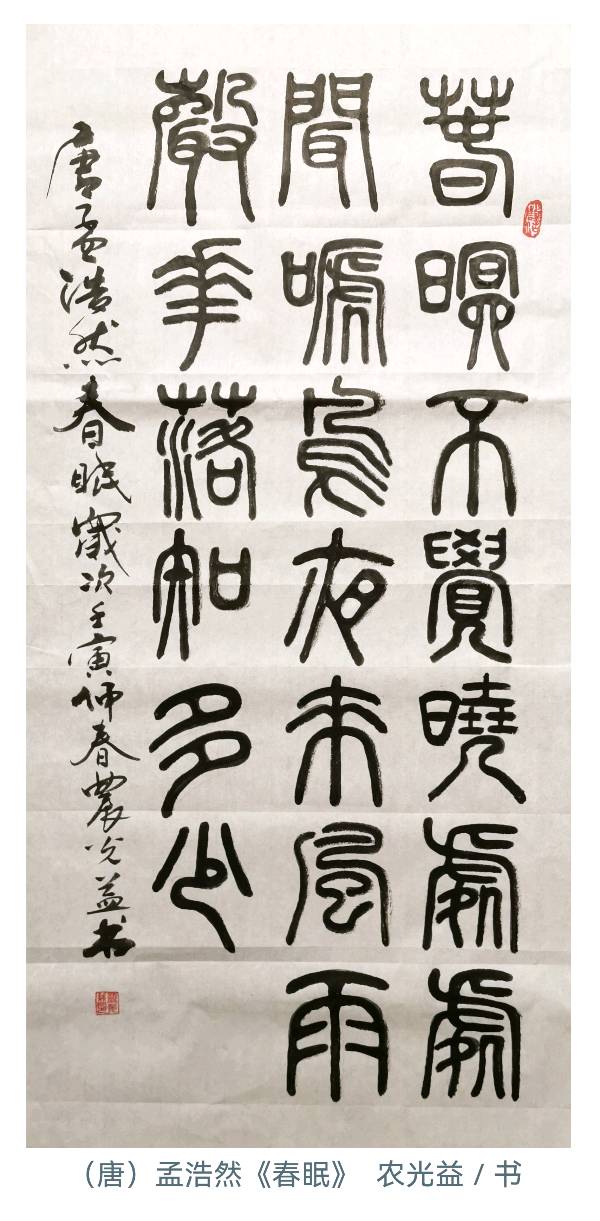 萅暝不覺曉處處
聞嗁鳥夜來風雨
聲華落知多少
唐孟浩然春眠歲次壬寅仲春農光益书
（唐）孟浩然《春眠》 农光益 / 书